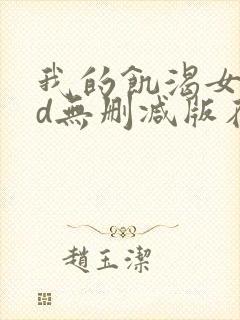 我的飢渴女
d無刪減版在
趙玉潔